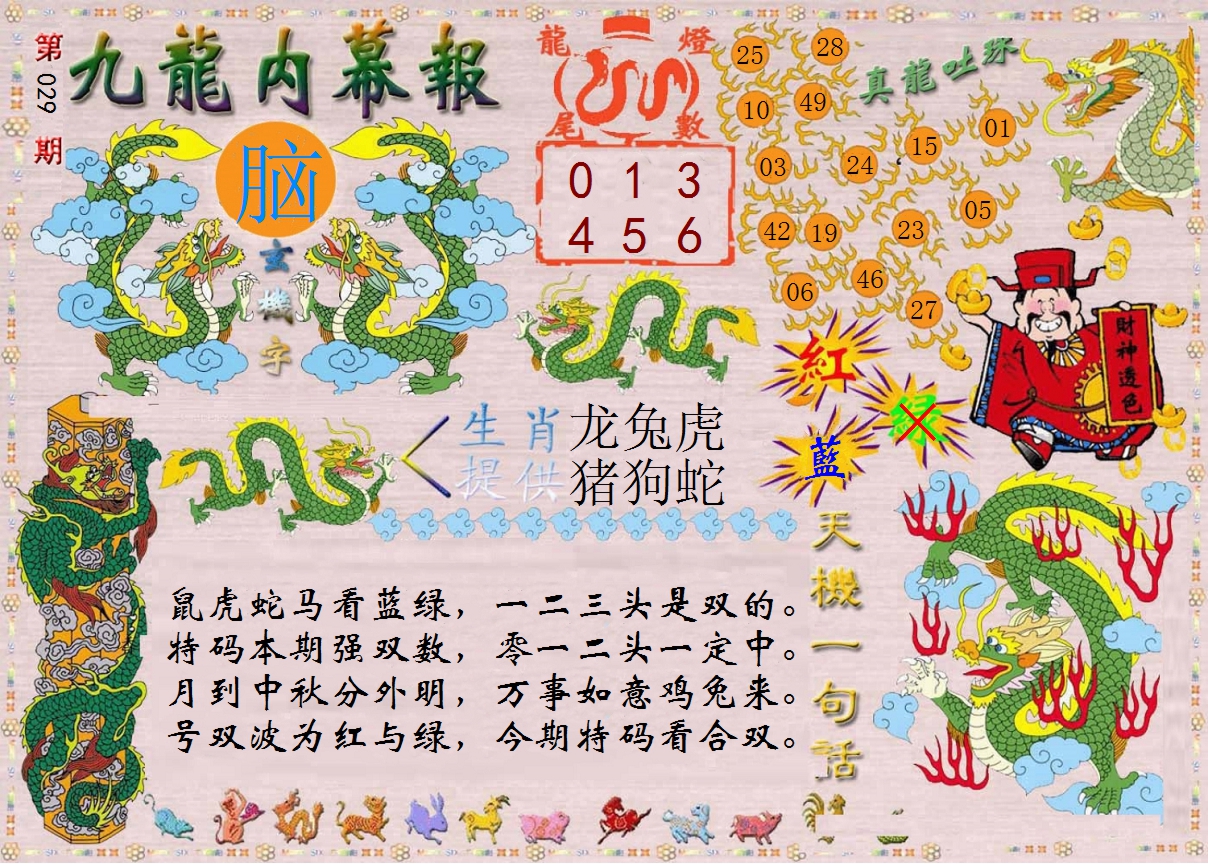 第029期
九龍内幕報
脑
玄機字
龍燈
尾數
0 1 3
4 5 6
真龍吐珠
25
28
10
49
03
24
15
01
42
19
23
05
06
46
27
紅
绿
藍
財神透色
生肖 龙兔虎
提供 猪狗蛇
天機一句話
鼠虎蛇马看蓝绿，一二三头是双的。
特码本期强双数，零一二头一定中。
月到中秋分外明，万事如意鸡兔来。
号双波为红与绿，今期特码看合双。